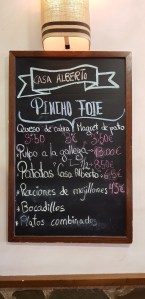 CASA ALBERTO
PINCHO FOIE
Queso de cabra / Magret de pato
8€ 5,50€
• Pulpo a la gallega
• Patatas "Casa Alberto"
• Raciones de mejillones
• Bocadillos
• Platos combinados